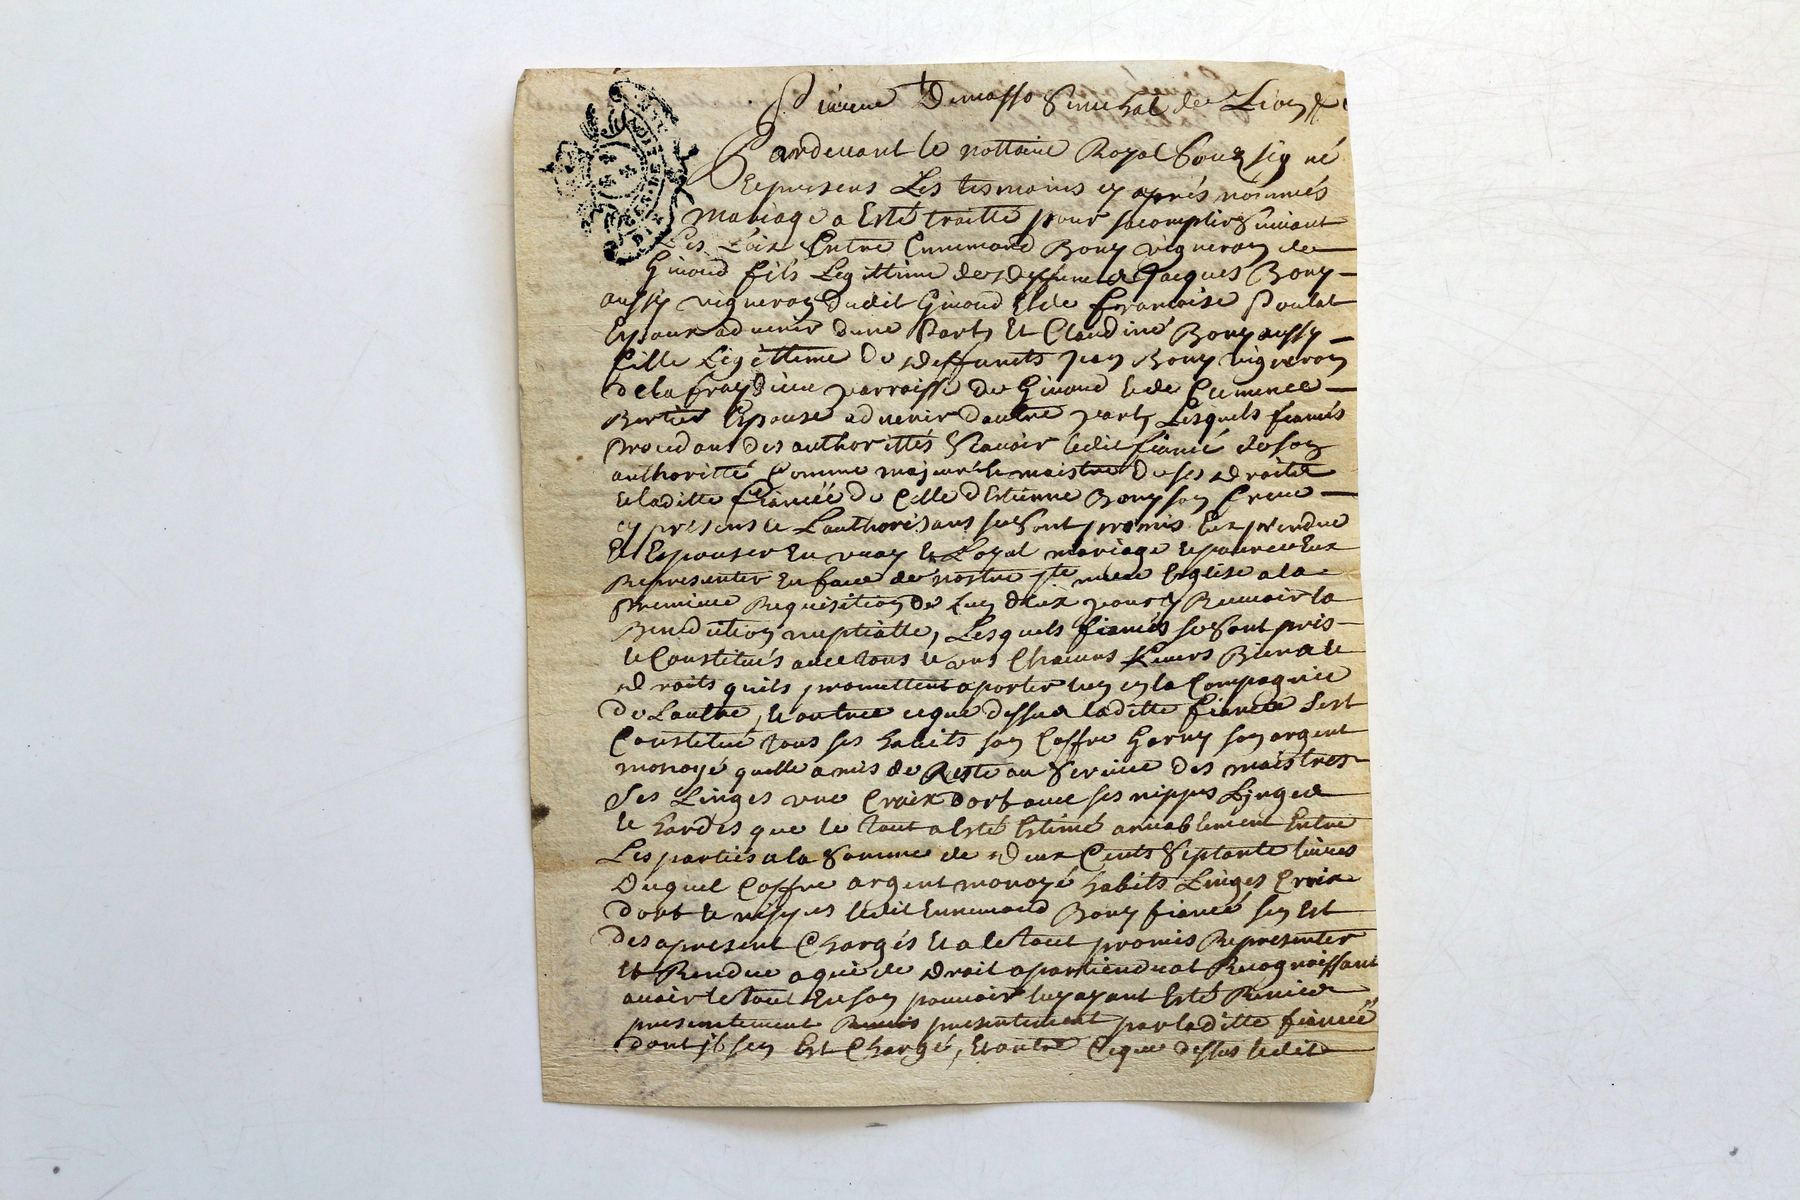 Pierre Demasso Senechal de Lion &
Pardevant le nottaire Royal Soubzsigné
Et presens Les tesmoins cy aprés nommés
mariage a Esté traitté pour sacomplir Suivant
Les Loix Entre Ennemond Bony vigneron de
Givord fils Legittime de deffunct Jacques Bony
aussy vigneron dudit Givord Et de francoise Poulat
Epoux advenir dune Part, Et Claudine Bony aussy
fille Legittime de deffuncts Jean Bony vigneron
de la parroisse de Givord Et de Clemence
Bertier Espouse advenir dautre part, Lesquels fiancés
procedans des authorittés Scavoir ledit fiancé de son
authoritté Comme majeur Et maistre de ses droits
Et laditte fiancée de Celle d'Estienne Bony son frere
cy present Et Lauthorisans se sont promis Eux prendre
Et Espouser En vray Et Loyal mariage Et pour ce Eux
Representer En face de nostre ste mere Esglise a la
premiere Requisition de Lun deux pour y Recevoir la
Benediction nuptialle, Lesquels fiancés se sont pris
Et Constitués avec tous Et uns Chacuns Leurs Biens Et
droits quils promettent aporter lun en la Compagnie
de Lautre, Et outre ce que dessus laditte fiancée sest
Constitué tous ses habits son Coffre Garny son argent
monoyé quelle a mis de Reste au Service des maistres
Ses Linges une Croix dor avec ses nippes Linges
Et hardes que le tout a Esté Estimé amiablement Entre
Les parties a la Somme de Deux Cents Septante livres
Duquel Coffre argent monoyé habits Linges Croix
dor Et nippes ledit Ennemond Bony fiancé sen Est
des apresent Chargés Et a le tout promis Representer
Et Rendre a qui de droit apartiendrat Recognoissant
avoir le tout En son pouvoir luy ayant Esté Remis
presentement Remis presentement par laditte fiancée
dont il sen Est Chargé, Et outre Ce que dessus ledit